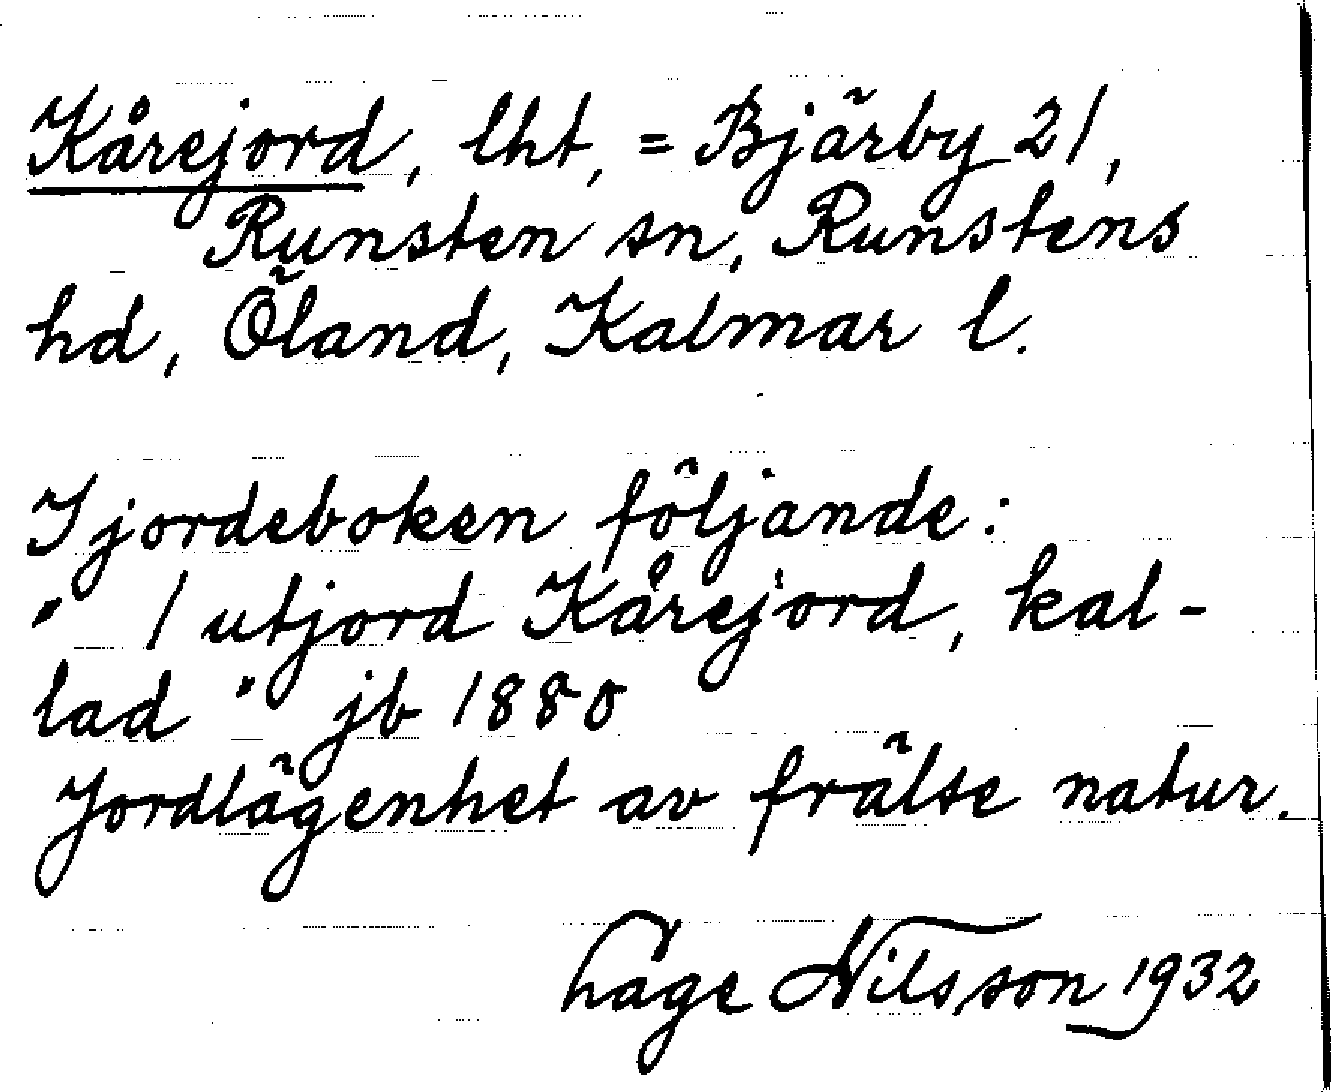 Kårejord, lht, = Bjärby 21,
Runsten sn, Runstens
hd, Öland, Kalmar l.
I jordeboken följande:
" 1 utjord Kårejord, kal-
lad " jb 1880
Jordlägenhet av frälse natur.
Håge Nilsson 1932